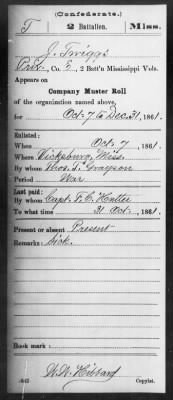 (Confederate.)
T 2 Battalion. Miss.
J. Twiggs
Pvt., Co. E, 2 Batt'n Mississippi Vols.
Appears on
Company Muster Roll
of the organization named above,
for Oct. 7 to Dec. 31, 1861.
Enlisted:
When Oct. 7, 1861.
Where Vicksburg, Miss.
By whom Thos. T. Grayson
Period War
Last paid:
By whom Capt.
To what time 31 Oct., 1861.
Present or absent Present
Remarks: Sick.
Book mark:
(642) Copyist.
Hibbard